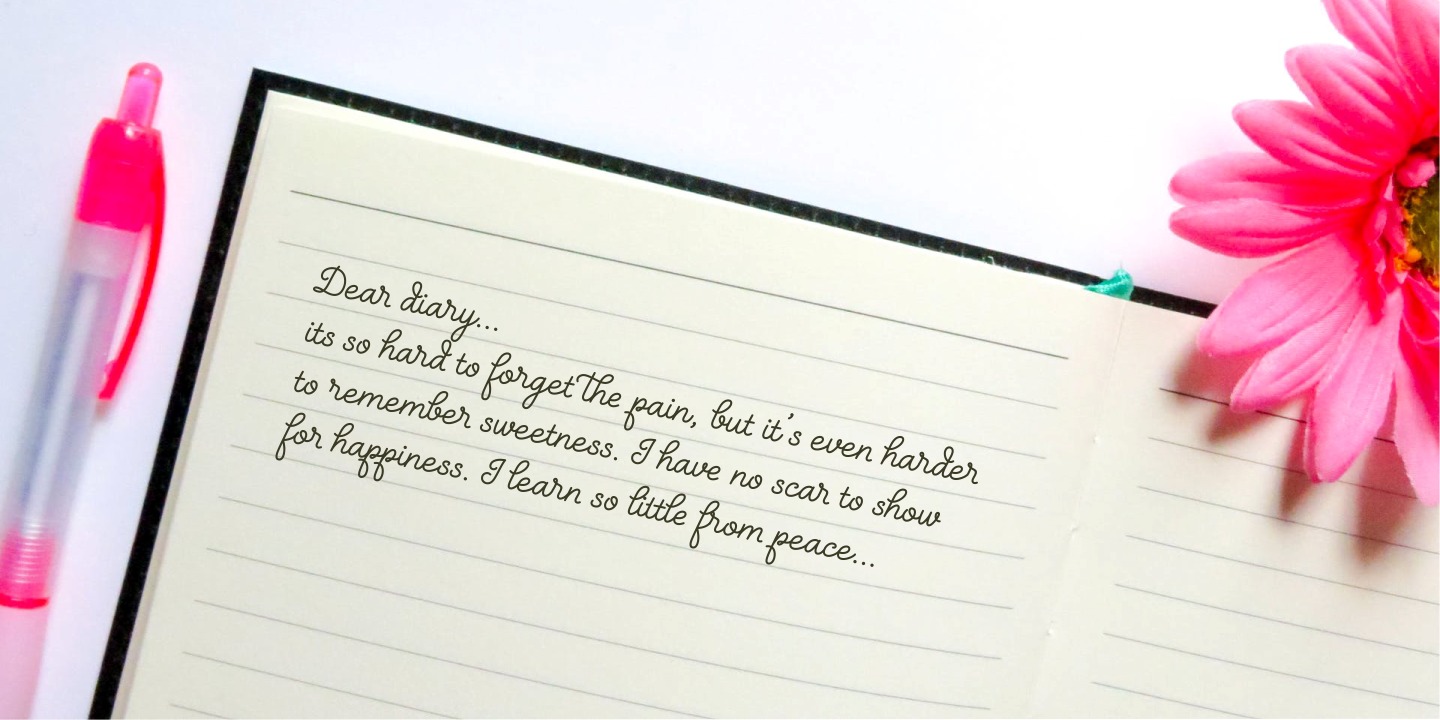 Dear diary...
its so hard to forget the pain, but it's even harder
to remember sweetness. I have no scar to show
for happiness. I learn so little from peace...